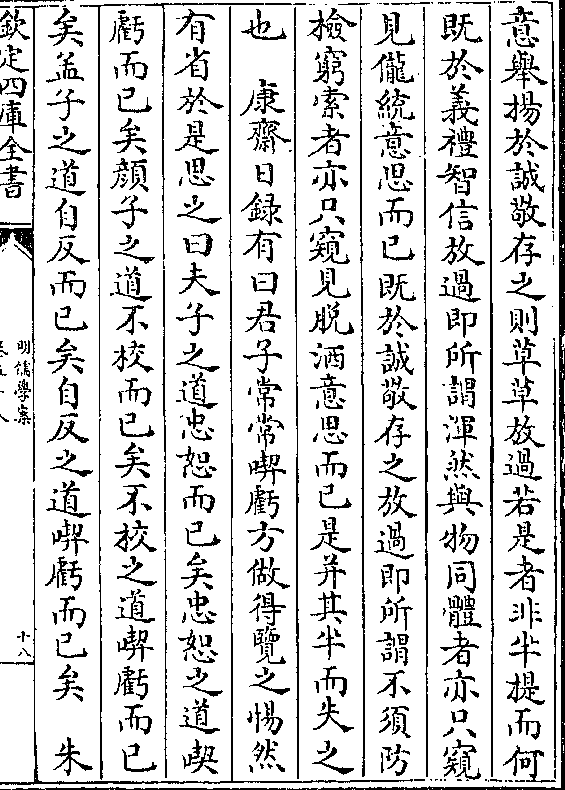 意舉揚於誠敬存之則草草放過若是者非半提而何
既於義禮智信放過即所謂渾然與物同體者亦只窺
見儱統意思而已既於誠敬存之放過即所謂不須防
檢窮索者亦只窺見脫洒意思而已是并其半而失之
也　康齋日録有曰君子常常喫虧方做得覽之惕然
有省於是思之曰夫子之道忠恕而已矣忠恕之道喫
虧而已矣顔子之道不校而已矣不校之道喫虧而已
矣孟子之道自反而已矣自反之道喫虧而已矣　朱
欽定四庫全書
明儒學案
十八